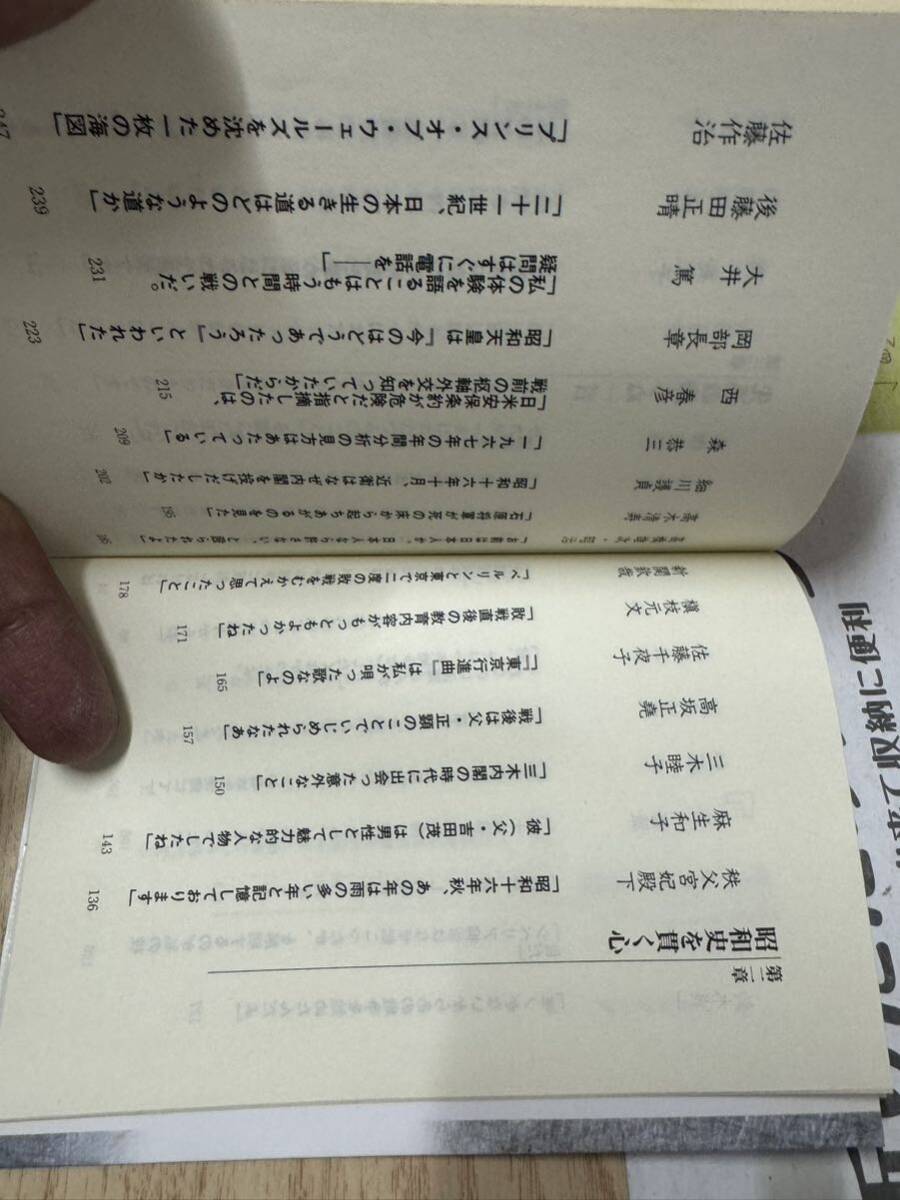 第二章
昭和史を貫く心
秩父宮妃殿下
「昭和十六年秋、あの年は雨の多い年と記憶しております」
136
麻生和子
「彼（父・吉田茂）は男性として魅力的な人物でしたね」
143
三木睦子
「三木内閣の時代に出会った意外なこと」
150
高坂正堯
「戦後は父・正顕のことでいじめられたなあ」
157
佐藤千夜子
「『東京行進曲』は私が唄った歌なのよ」
165
槇枝元文
「敗戦直後の教育内容がもっともよかったね」
171
新関欽哉
「ベルリンと東京で二度の敗戦をむかえて思ったこと」
178
「お前は日本人か、日本人なら許さない、と怒られたよ」
186
高木清寿
「石原将軍が死の床から起ちあがるのを見た」
195
細川護貞
「昭和十六年十月、近衛はなぜ内閣を投げだしたか」
202
森恭三
「一九六七年の年間分析の見方はあたっている」
209
西春彦
「日米安保条約が危険だと指摘したのは、
戦前の枢軸外交を知っていたからだ」
215
岡部長章
「昭和天皇は『今のはどうであったろう』といわれた」
223
大井篤
「私の体験を語ることはもう時間との戦いだ。
疑問はすぐに電話を――」
231
後藤田正晴
「二十一世紀、日本の生きる道はどのような道か」
239
佐藤作治
「プリンス・オブ・ウェールズを沈めた一枚の海図」
247
収納に便利